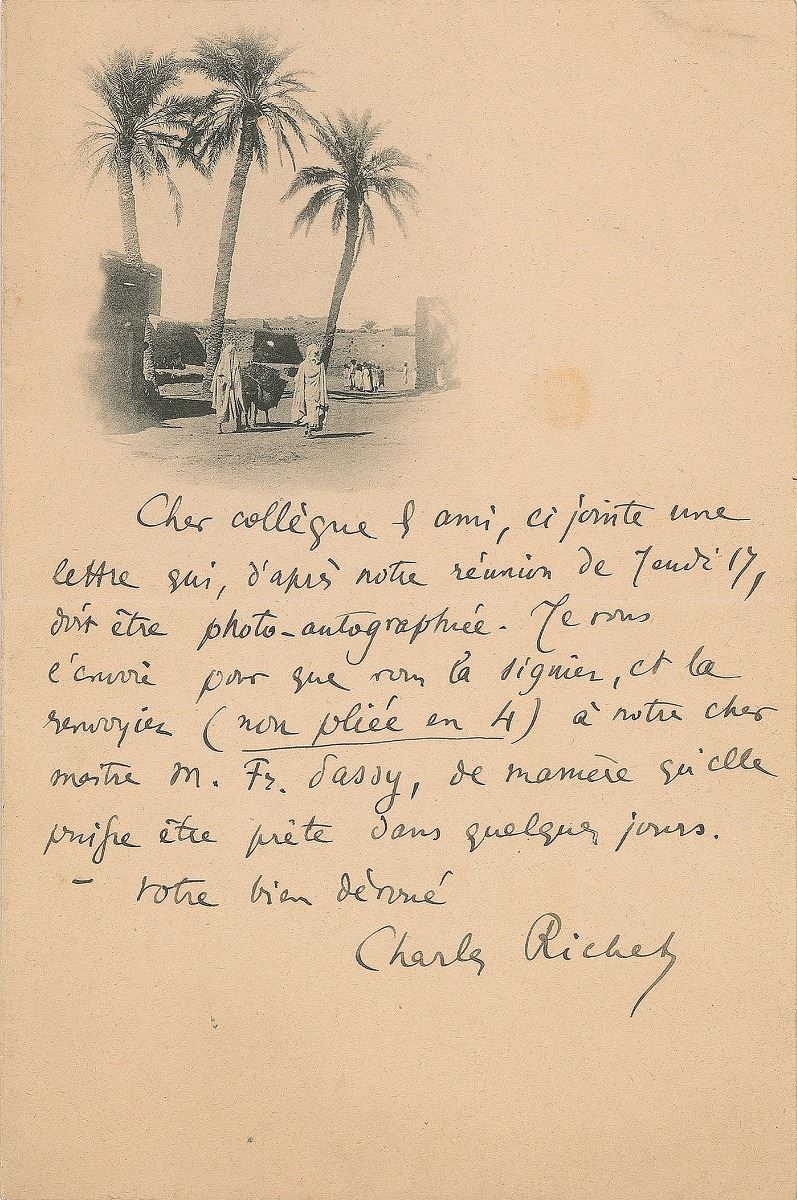 Cher collègue & ami, ci jointe une
lettre qui, d'après notre réunion de Jeudi 17,
doit être photo-autographiée. Je vous
l'envoie pour que vous la signiez, et la
renvoyiez (non pliée en 4) à notre cher
maître M. Fr. Passy, de manière qu'elle
puisse être prête dans quelques jours.
– Votre bien dévoué
Charles Richet